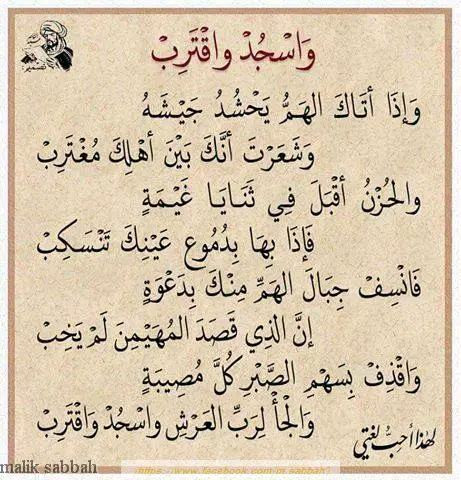 وَاسْجُدْ واقْتَرِبْ
وَإذَا أتَاكَ الهَمُّ يَحْشُدُ جَيْشَهُ
وَشَعَرْتَ أنَّكَ بَيْنَ أهْلِكَ مُغْتَرِبْ
والحُزْنُ أقْبَلَ فِي ثَنَايَا غَيْمَةٍ
فَإذَا بِهَا بِدُمُوعِ عَيْنِكَ تَنْسَكِبْ
فَانْسِفْ جِبَالَ الهَمِّ مِنْكَ بِدَعْوَةٍ
إنَّ الذِي قَصَدَ المُهَيْمِنَ لَمْ يَخِبْ
وَاقْذِفْ بِسَهْمِ الصَّبْرِ كُلَّ مُصِيبَةٍ
وَالْجَأْ لِرَبِّ العَرْشِ واسْجُدْ وَاقْتَرِبْ
لهذا أحبُّ لغتي
malik sabbah
https://www.facebook.com/m.sabbah1